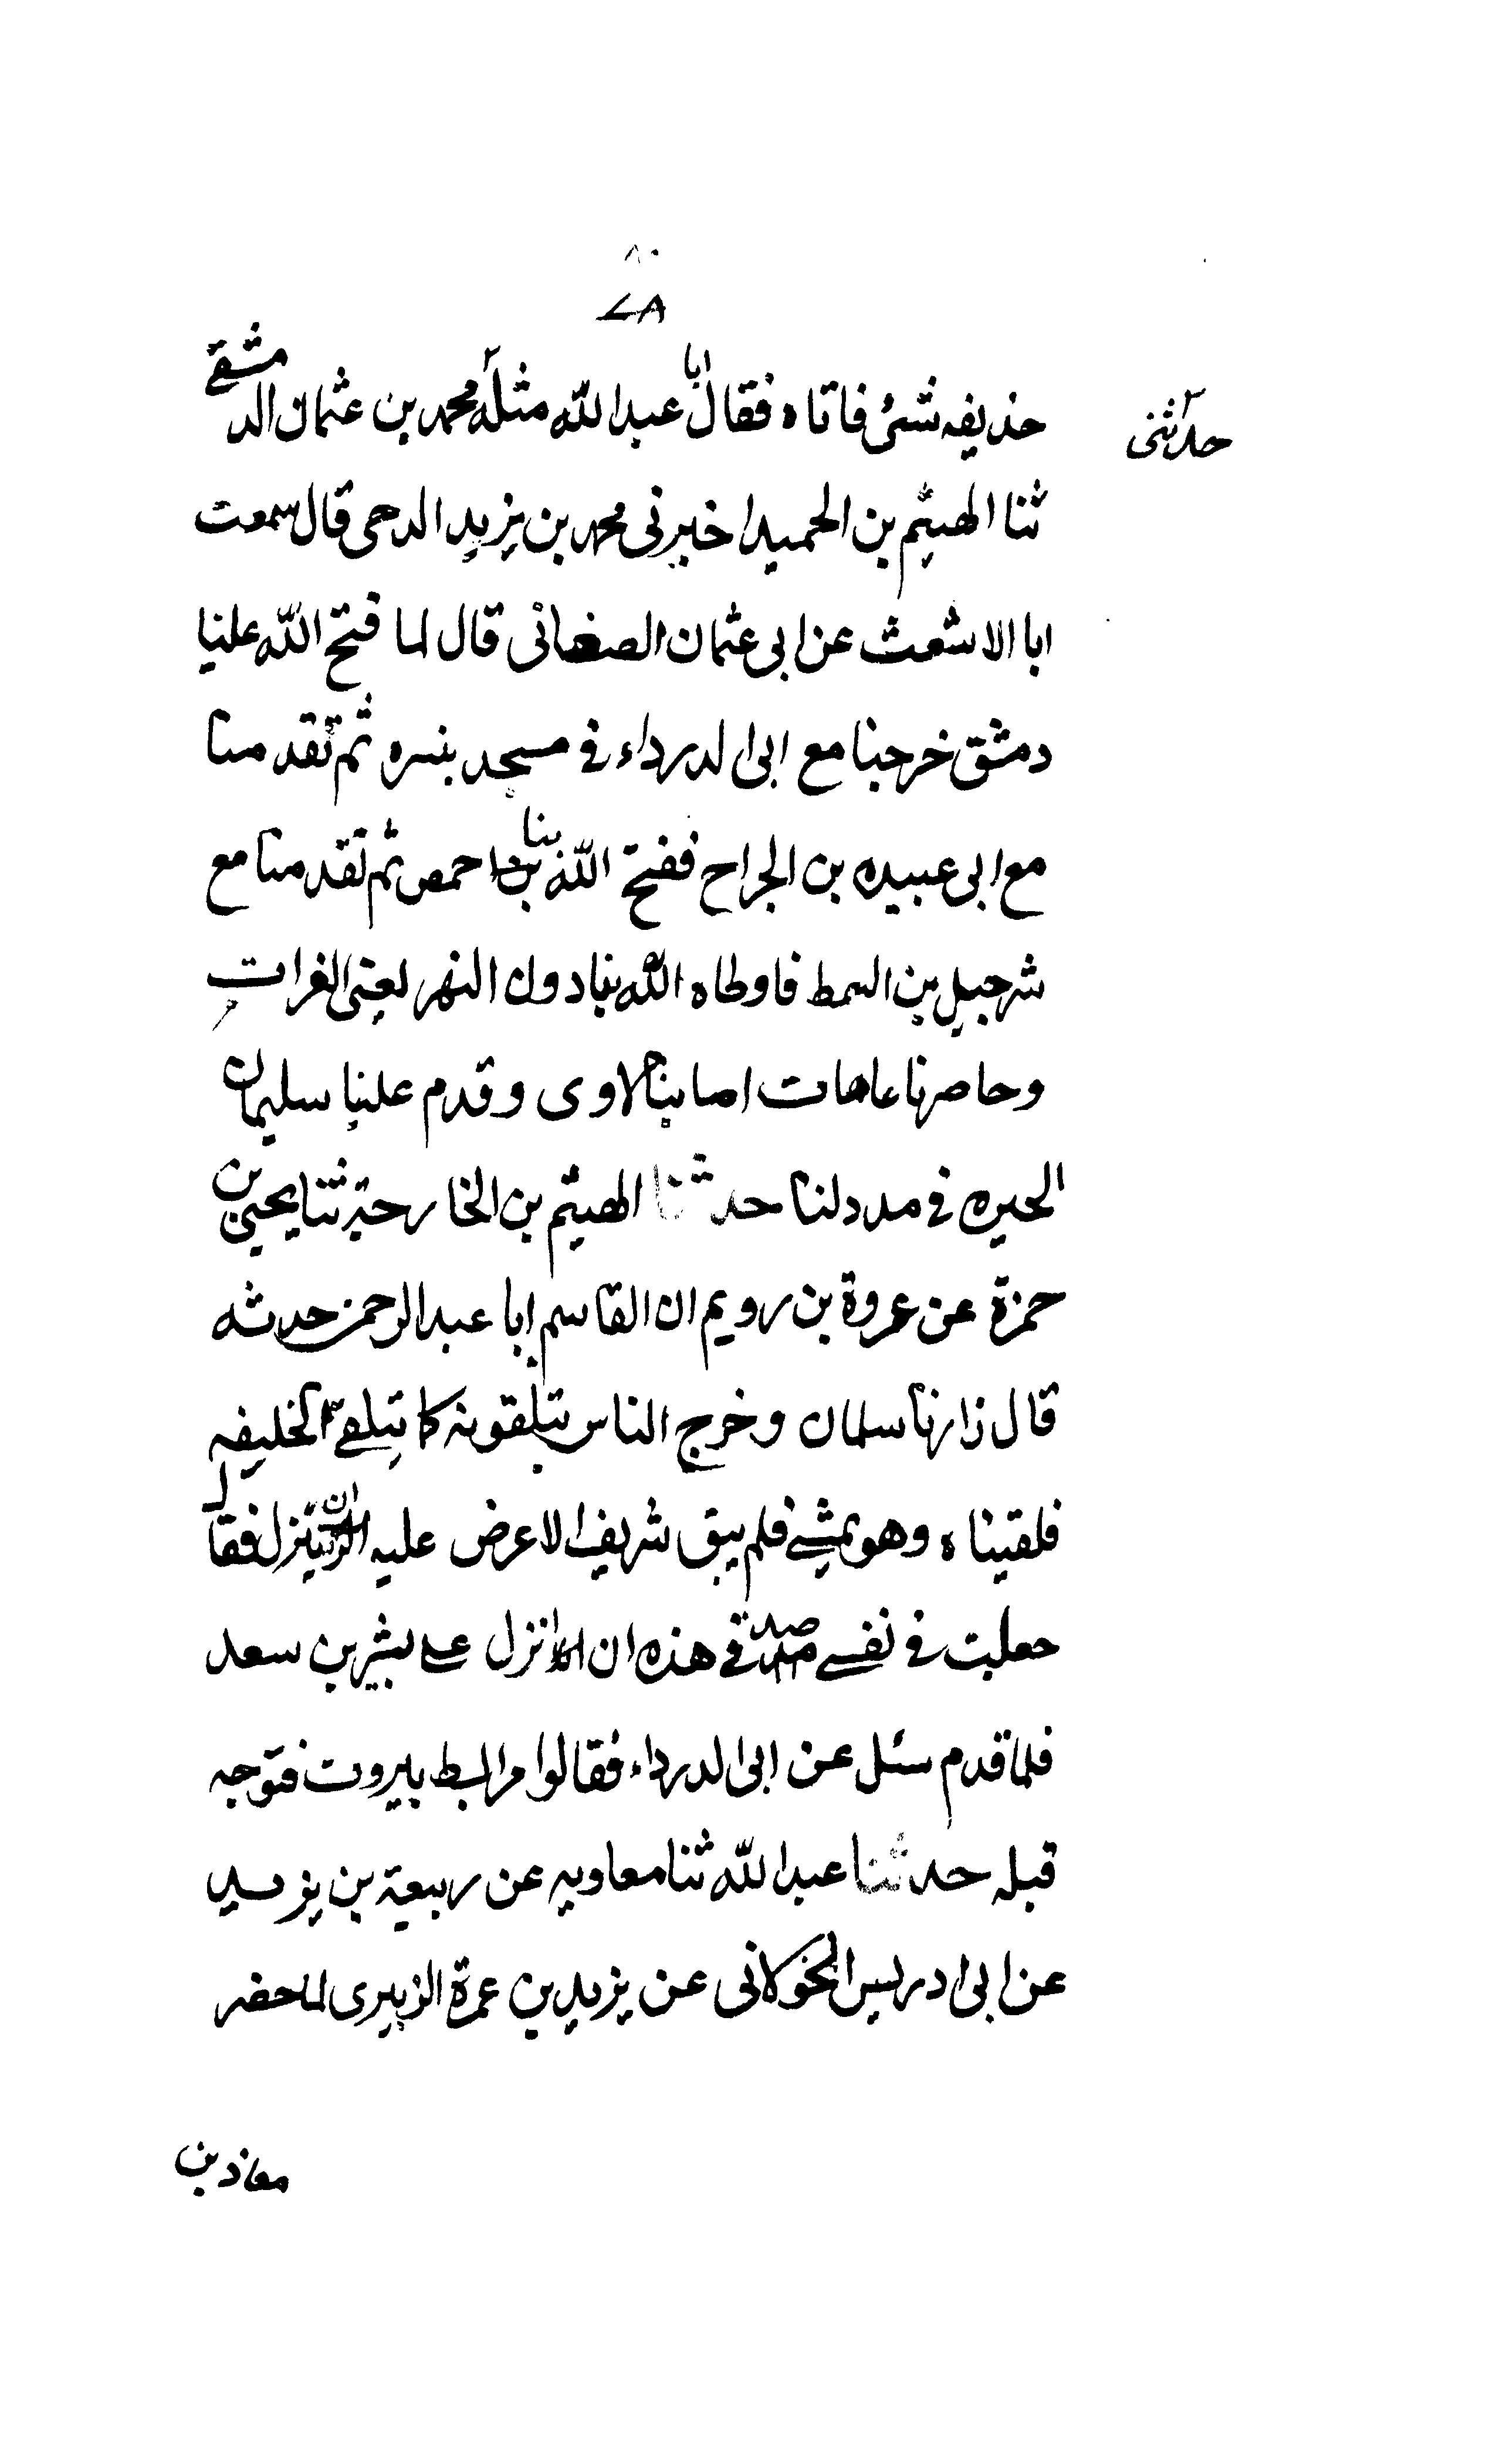 ٨٠
٧٨
حذيفه شئ فاتاه فقال ابا عبدالله مثله محمد بن عثمان الدمشقے
حدثنى
ثنا الهيثم بن الحميد اخبرنى محمد بن يزيد الدحى قال سمعت
ابا الاشعث عن ابى عثمان الصغانى قال لما فتح الله علينا
دمشق خرجنا مع ابى الدرداء فى مسجد بنسره ثم تقدمنا
مع ابى عبيده بن الجراح ففتح الله بنا حمص ثم تقدمنا مع
شرجيل بن السمط فاوطاه الله بنا دون النهر يعنى الفرات
وحاصرنا عاهات اصابنا لاوى وقدم علينا سليمان
الحيره فى مدد لنا حدثنا الهيثم بن الخارجة ثنا يحيى بن
حمزة عن عروة بن رويم ان القاسم ابا عبد الرحمن حدثه
قال زارنا سلمان وخرج الناس يتلقونه كما يتلقے الخليفه
فلقيناه وهو يمشے فلم يبق شريف الا عرض عليه ان ينزل فقال
جعلت فى نفسے فى هذه ان انزل علے بشير بن سعد
فلما قدم سئل عن ابى الدرداء فقالوا مرابط بيروت فتوجه
قبله حدثنا عبد الله ثنا معاويه عن ربيعة بن يزيد
عن ابى ادريس الخولانى عن يزيد بن عمرة الزبيرى لما حضر
معاذ بن